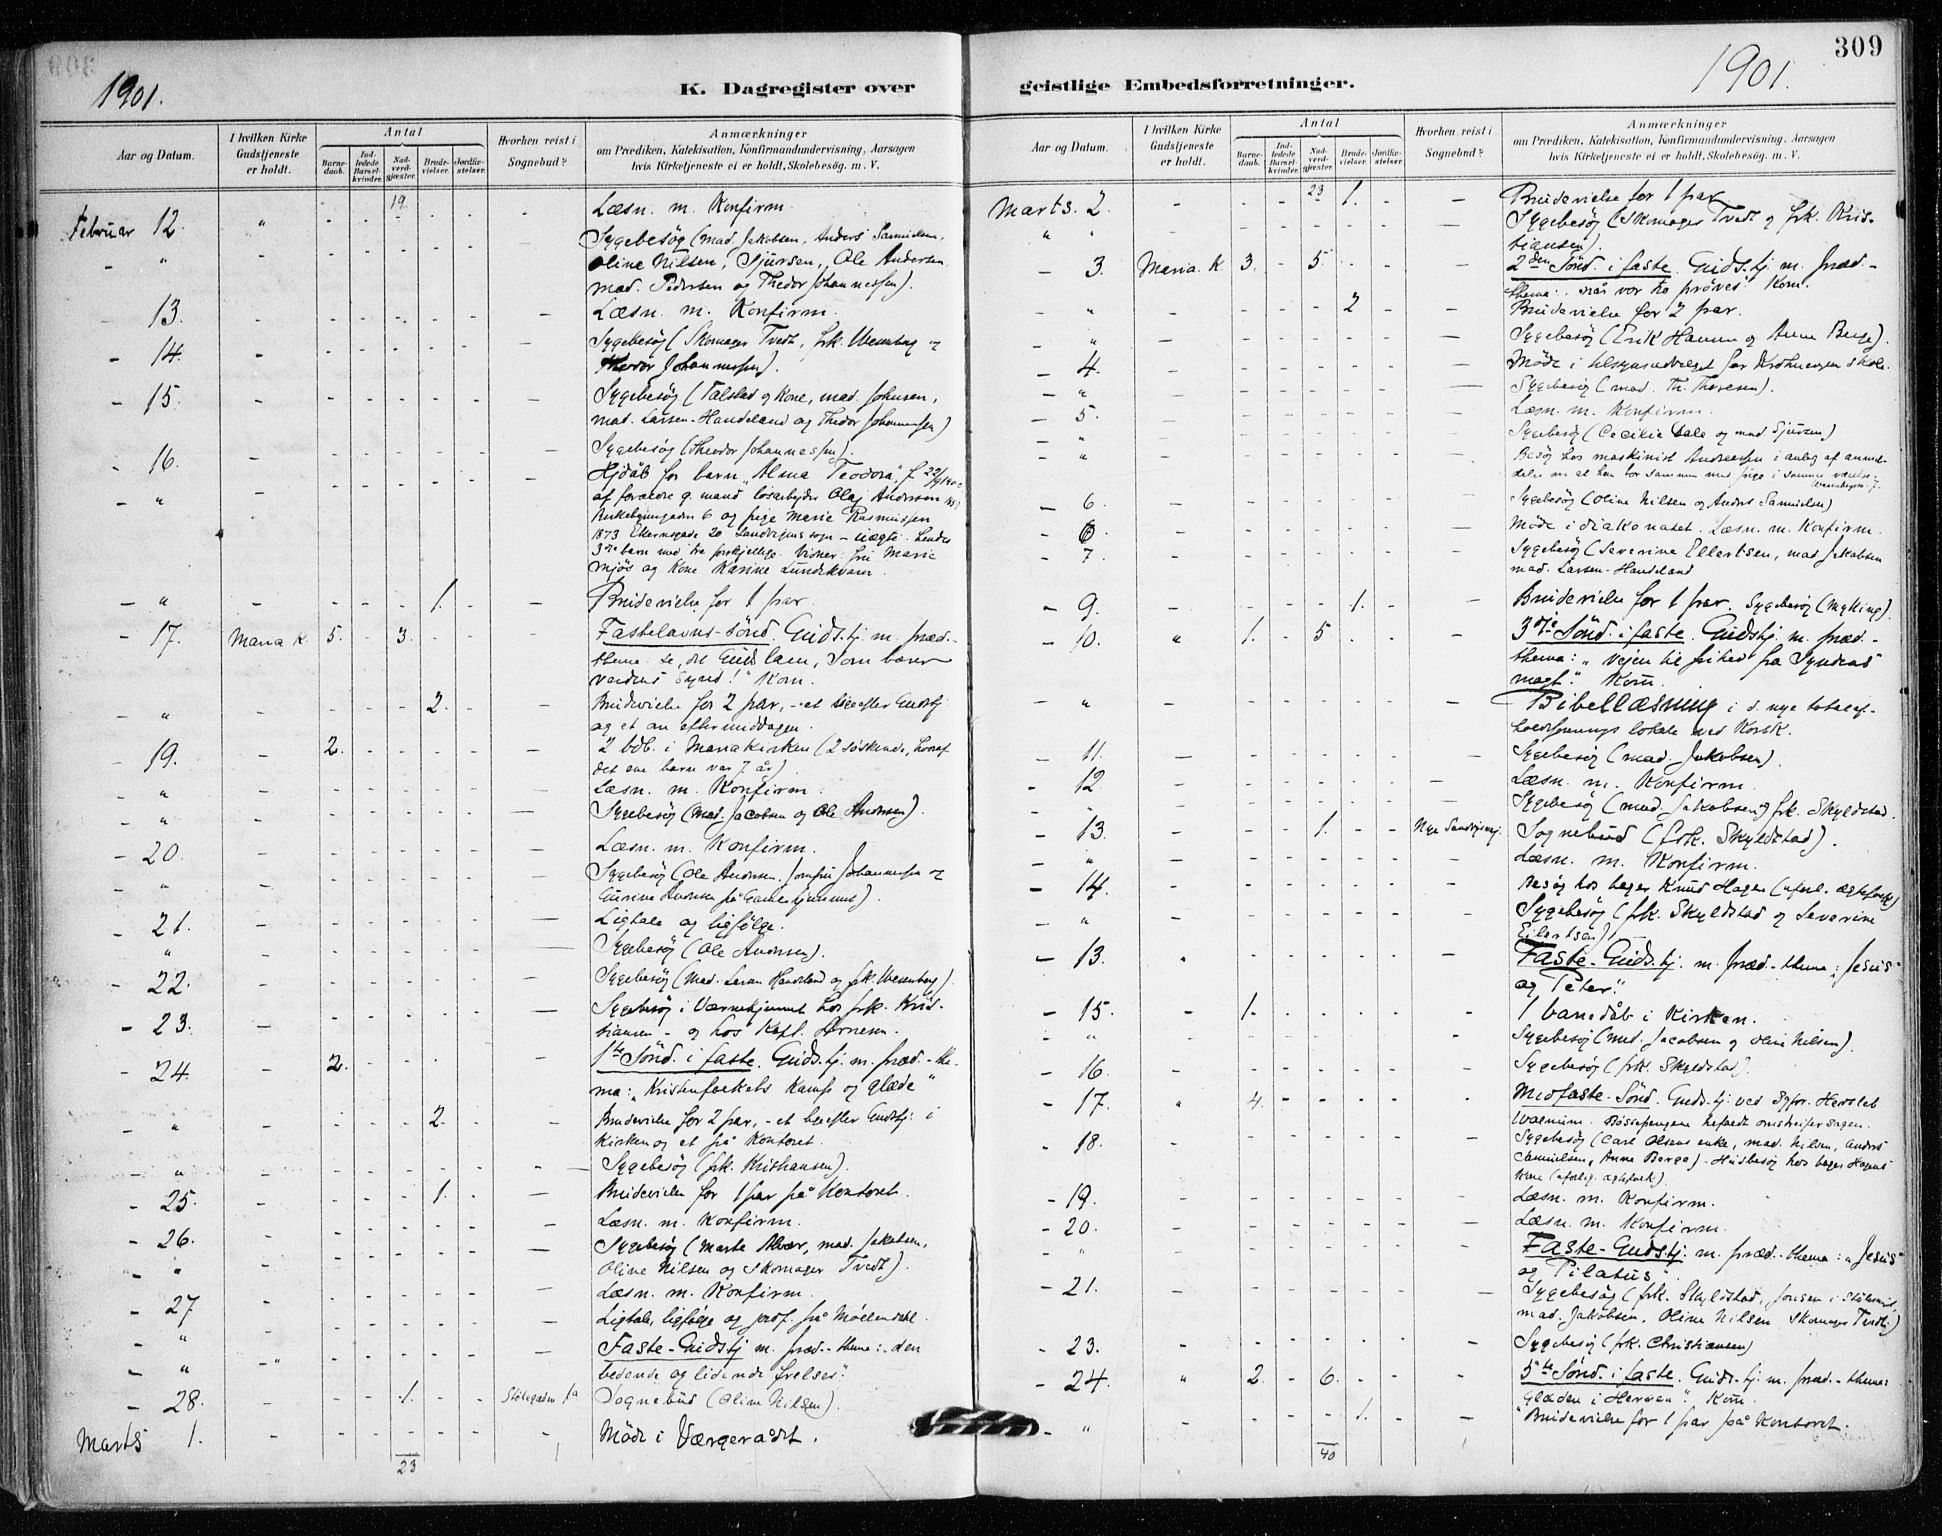 309
1901.
1901.
K. Dagregister over geistlige Embedsforretninger.
Aar og Datum. I hvilken Kirke Gudstjeneste er holdt. Antal Barnedaab. Indledede Barselkvinder. Nadverdgjæster. Brudevielser. Jordfæstelser. Hvorhen reist i Sognebud? Anmærkninger om Prædiken, Katekisation, Konfirmandundervisning, Aarsagen hvis Kirketjeneste ei er holdt, Skolebesøg. m. V.
19
Februar 12. " Læsn. m. Konfirm.
" Sygebesøg (mad. Jakobsen, Anders Samuelsen,
Oline Nilsen, Sjursen, Ole Andersen
mad. Pedersen og Thedor Johannessen).
13. Læsn. m. Konfirm.
14. Sygebesøg (Skomager Tvedt, frk. Wesenberg og
Thedor Johannessen).
15. Sygebesøg (Talstad og Kone, mad. Johnsen,
mad. Larsen-Handeland og Thedor Johannessen)
16. Sygebesøg (Theodor Johannessen).
" Hjdåb for barn "Alma Teodora" f. 22/9 1900
af forældre g. mand løsarbejder Olaf Andersen
6 og pige Marie Rasmussen
1873 20 Sandvigens sogn - uægte. Hendes
3die barn med tre forskjellige. Vidner: fru Marie
Mjøs og Kone Karine Lundekvam.
" 1. Brudevielse for 1 par.
17. Maria K. 5. 3. Fastelavns-sønd. Gudstj. m. præd.-
thema: Se, det Guds lam, som bærer
verdens synd!" Kom.
" 2. Brudevielse for 2 par, - et lige efter Gudstj.
og et om eftermiddagen.
19. 2. 2 bdb. i Mariakirken (2 søskende, hvoraf
det ene barn var 7 år)
" Læsn. m. Konfirm.
" Sygebesøg (Mad. Jacobsen og Ole Andersen).
20. Læsn. m. Konfirm.
" Sygebesøg (Ole Andersen, Jomfru Johannessen og
Gurine Iversen på Gamlehjemmet).
21. Ligtale og ligfølge.
" Sygebesøg (Ole Andersen).
22. Sygebesøg (Mad. Larsen Handeland og frk. Wesenberg).
23. Sygebesøg i Værnehjemmet hos frk. Kris-
tiansen - og hos Kapt. Arnesen.
24. 2. 1ste Sønd. i faste. Gudstj. m. præd.-the-
ma: "Kristenfolkets Kamp og glæde"
" 2. Brudevielse for 2 par, - et lige efter Gudstj. i
Kirken og et på Kontoret.
" Sygebesøg (frk. Kristiansen).
25. 1. Brudevielse for 1 par på Kontoret.
26. Læsn. m. Konfirm.
" Sygebesøg (Marte Alvær, mad. Jakobsen,
Oline Nilsen og Skomager Tvedt).
27 Læsn. m. Konfirm.
" Ligtale, ligfølge og jordf. på Møllendahl.
" Faste-Gudstj. m. præd.-thema: den
bedende og lidende frelser."
28. 1. Stølegaden 1a Sognebud (Oline Nilsen).
Marts 1. Møde i Værgerådet.
23
23
Marts. 2. 1. Brudevielse for 1 par
" " Sygebesøg (Skomager Tvedt og frk. Kris-
tiansen).
3. Maria K. 3. 5. 2den Sønd. i faste. Gudstj. m. præd.-
thema: når vor tro prøves. Kom.
" 2 Brudevielse for 2 par.
" Sygebesøg (Erik Hansen og Anne Berge).
4. Møde i tilsynsudvalget for Krohnengen skole.
" Sygebesøg (mad. Th. Thoresen).
5. Læsn. m. Konfirm.
" Sygebesøg (Cecilie Dale og mad Sjursen)
" Besøg hos maskinist Andreassen i anleg af anmel-
delse om at han bor sammen med pige i samme værelse
6. Sygebesøg (Oline Nilsen og Anders Samuelsen)
6 Møde i diakonatet. Læsn. m. Konfirm.
7. Sygebesøg (Severine Ellertsen, mad Jakobsen
mad. Larsen-Handeland
9. 1. Brudevielse for 1 par. Sygebesøg (Myking).
10. " 1. 5. 3die Sønd. i faste. Gudstj. m. præd.-
thema: "Vejen til frihed fra Syndens
magt." Kom.
" Bibellæsning i d. nye totalaf-
holdsforenings lokale ved Korsk.
11. Sygebesøg (mad. Jakobsen).
12 Læsn. m. Konfirm.
" Sygebesøg (mad. Jakobsen og frk. Skyldstad.
13. 1. Nye Sandvigsvej. Sognebud (frk. Skyldstad).
" Læsn. m. Konfirm.
14. Besøg hos bager Knud Hagen (uforl. ægtefolk)
" Sygebesøg (frk. Skyldstad og Severine
Eilertsen)
13. " Faste-Gudstj. m. præd.-thema: Jesus
og Peter."
15. 1. 1 barnedåb i Kirken.
" Sygebesøg (mad. Jacobsen og Oline Nilsen).
16. Sygebesøg (frk. Skyldstad).
17. " 4. Midfaste-Sønd. Gudstj. ved Sgpr. Hersleb
Walnum.
18. Sygebesøg (Carl Olsens enke, mad. Nilsen, Anders
Samuelsen, Anne Berge) - Husbesøg hos bager Hagens
Kone (uforlig. ægtefolk).
19. Læsn. m. Konfirm.
20. Læsn. m. Konfirm.
" Faste-Gudstj. m. præd.-thema: "Jesus
og Pilatus".
21. Sygebesøg (frk. Skyldstad, Jonsen i
mad. Jakobsen, Oline Nilsen Skomager Tvedt)
23. Sygebesøg (frk. Christiansen)
24. " 2. 6. 5te Sønd. i faste. Gudstj. m. præd.-thema:
Glæden i Herren". Kom.
" 1. Brudevielse for 1 par på Kontoret.
40